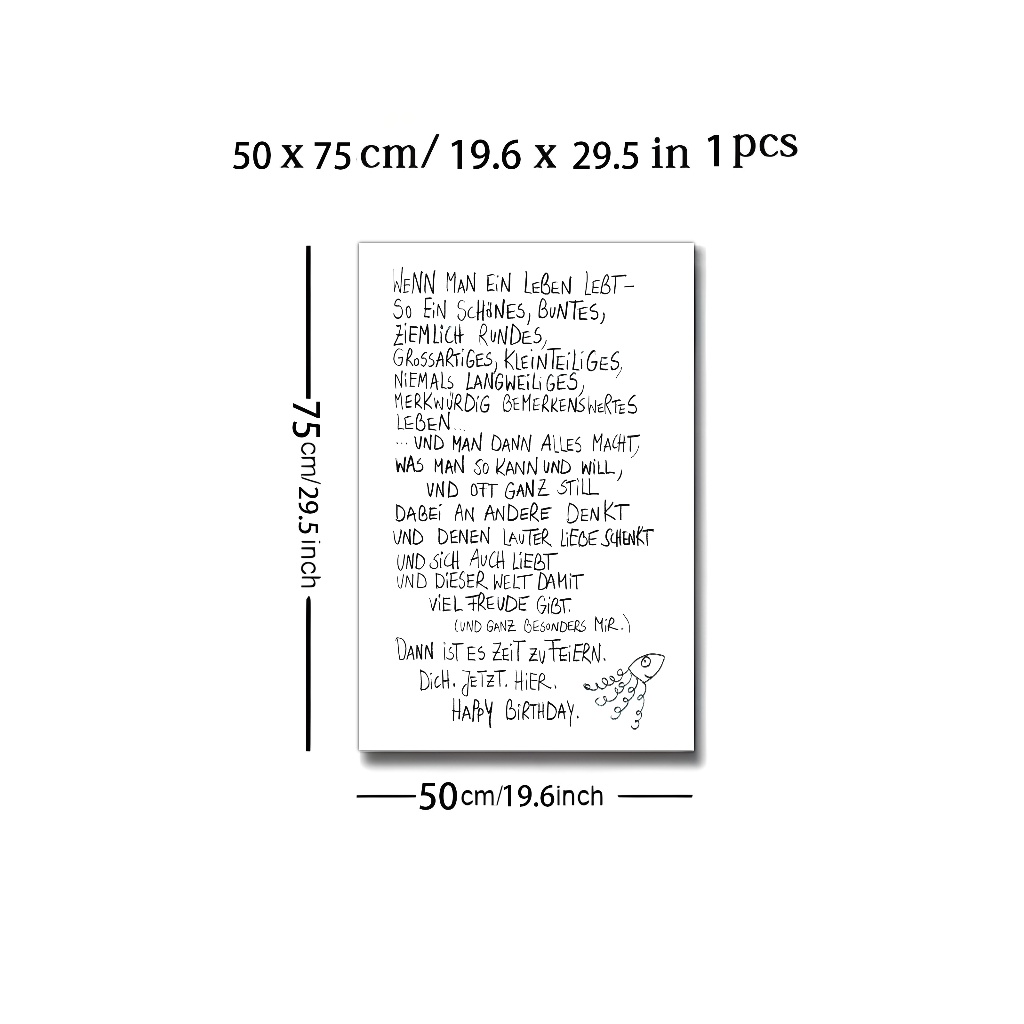 50 x 75 cm/ 19.6 x 29.5 in 1 pcs
75cm/29.5inch
WENN MAN EiN LEBEN LEBT–
SO EiN SCHÖNES, BUNTES,
ZiEMLiCH RUNDES,
GROSSARTiGES, KLEiNTEiLiGES,
NiEMALS LANGWEiLiGES,
MERKWÜRDiG BEMERKENSWERTES
LEBEN...
... UND MAN DANN ALLES MACHT,
WAS MAN SO KANN UND WiLL,
UND OFT GANZ STiLL
DABEi AN ANDERE DENKT
UND DENEN LAUTER LiEBE SCHENKT
UND SiCH AUCH LiEBT
UND DiESER WELT DAMiT
ViEL FREUDE GiBT.
(UND GANZ BESONDERS MiR.)
DANN iST ES ZEiT ZU FEiERN.
DiCH. JETZT. HiER.
HAPPY BiRTHDAY.
50cm/19.6inch